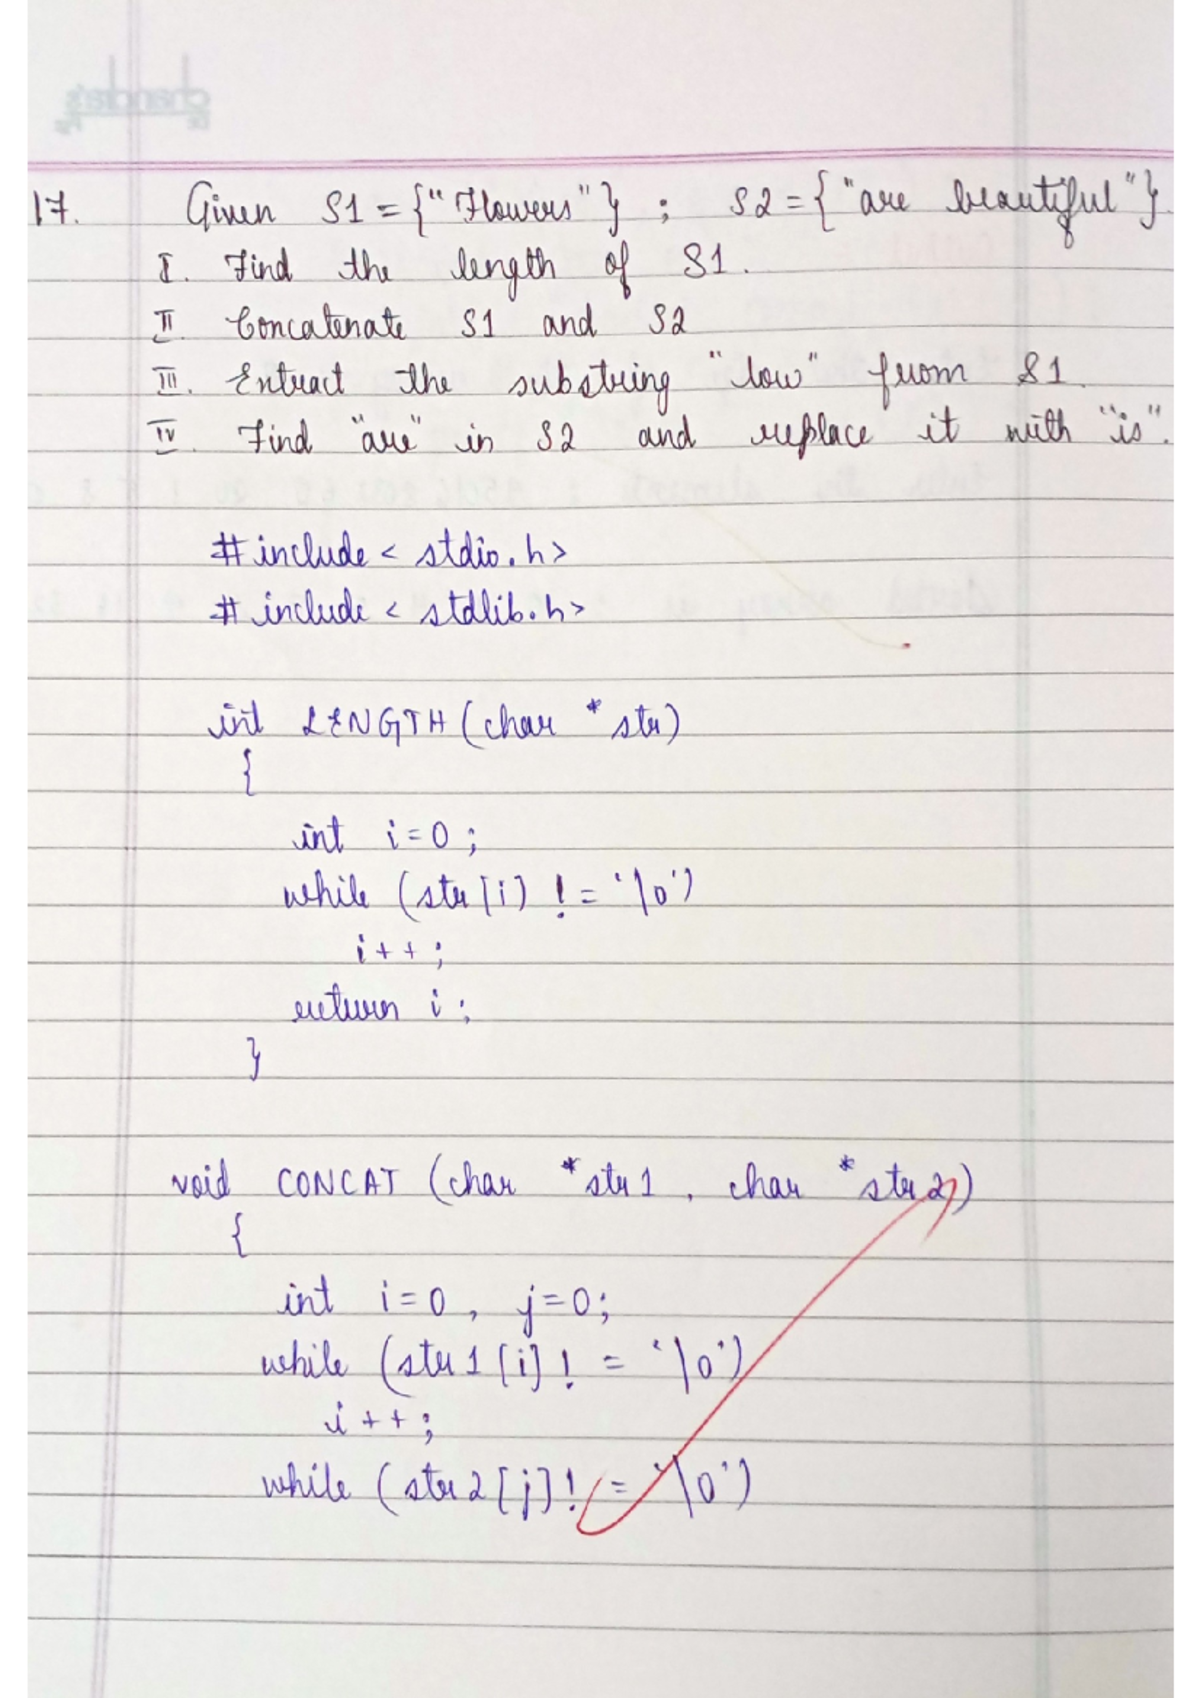 17. Given S1 = {"Flowers"} ; S2 = {"are beautiful"}.
I. Find the length of S1.
II. Concatenate S1 and S2
III. Extract the substring "low" from S1.
IV. Find "are" in S2 and replace it with "is".
#include < stdio.h>
# include < stdlib.h>
int LENGTH (char * str)
{
int i = 0 ;
while (str [i] ! = '\0')
i + + ;
return i ;
}
void CONCAT (char *str1 , char *str2)
{
int i = 0 , j = 0 ;
while (str1 [i] ! = '\0')
i + + ;
while (str2 [j] ! = '\0')